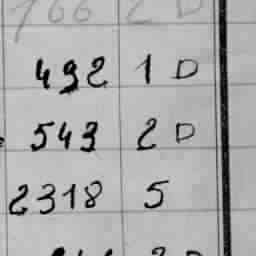 766 2 D
492 1 D
543 2 D
2318 5